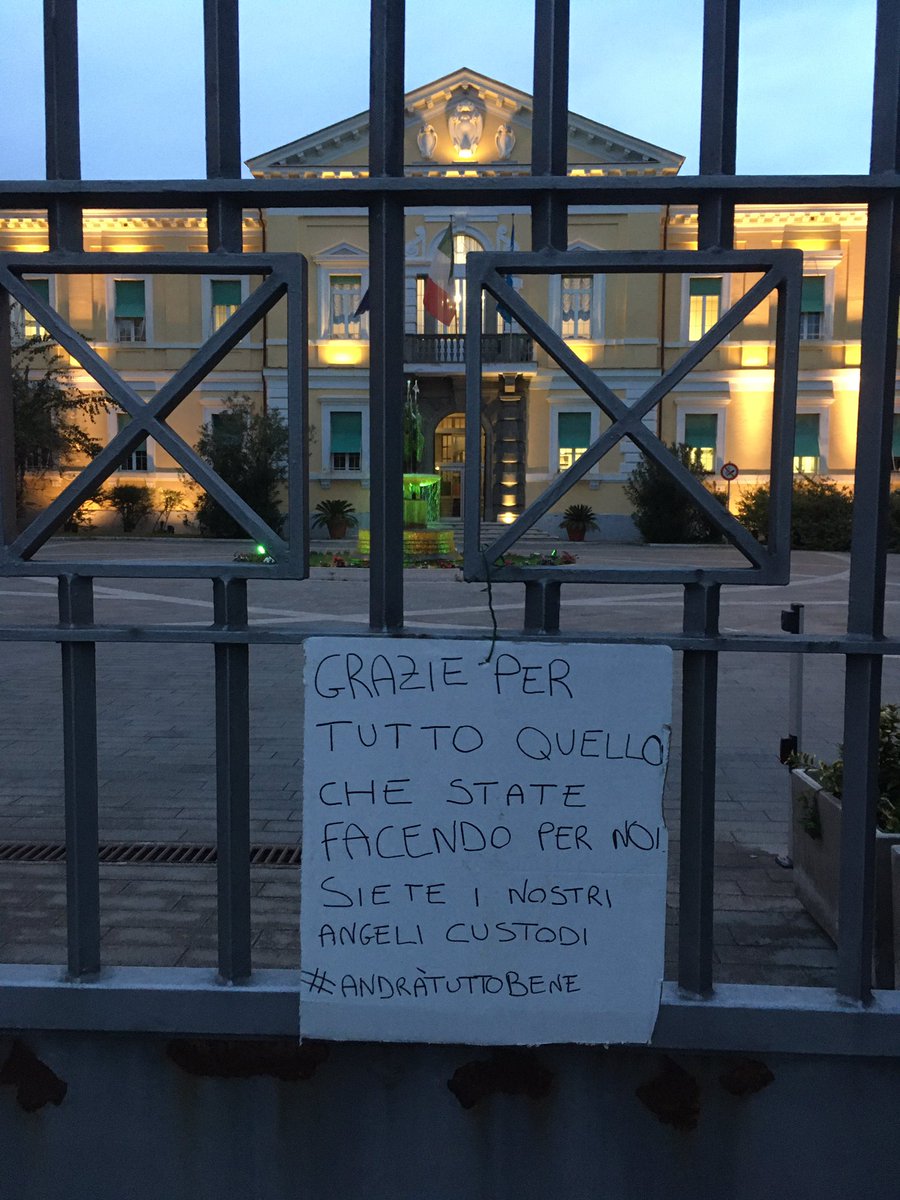 GRAZIE PER
TUTTO QUELLO
CHE STATE
FACENDO PER NOI
SIETE I NOSTRI
ANGELI CUSTODI
#ANDRÀTUTTOBENE